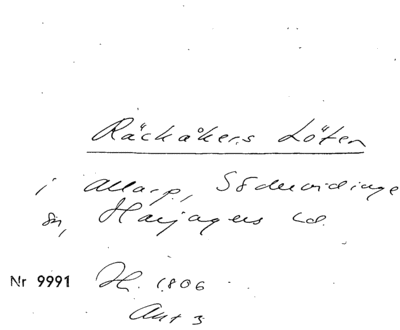 Räckåkers Löten
i Allarp, Södervidinge
sn, Harjagers hd.
Nr 9991 H. 1806
Akt 3